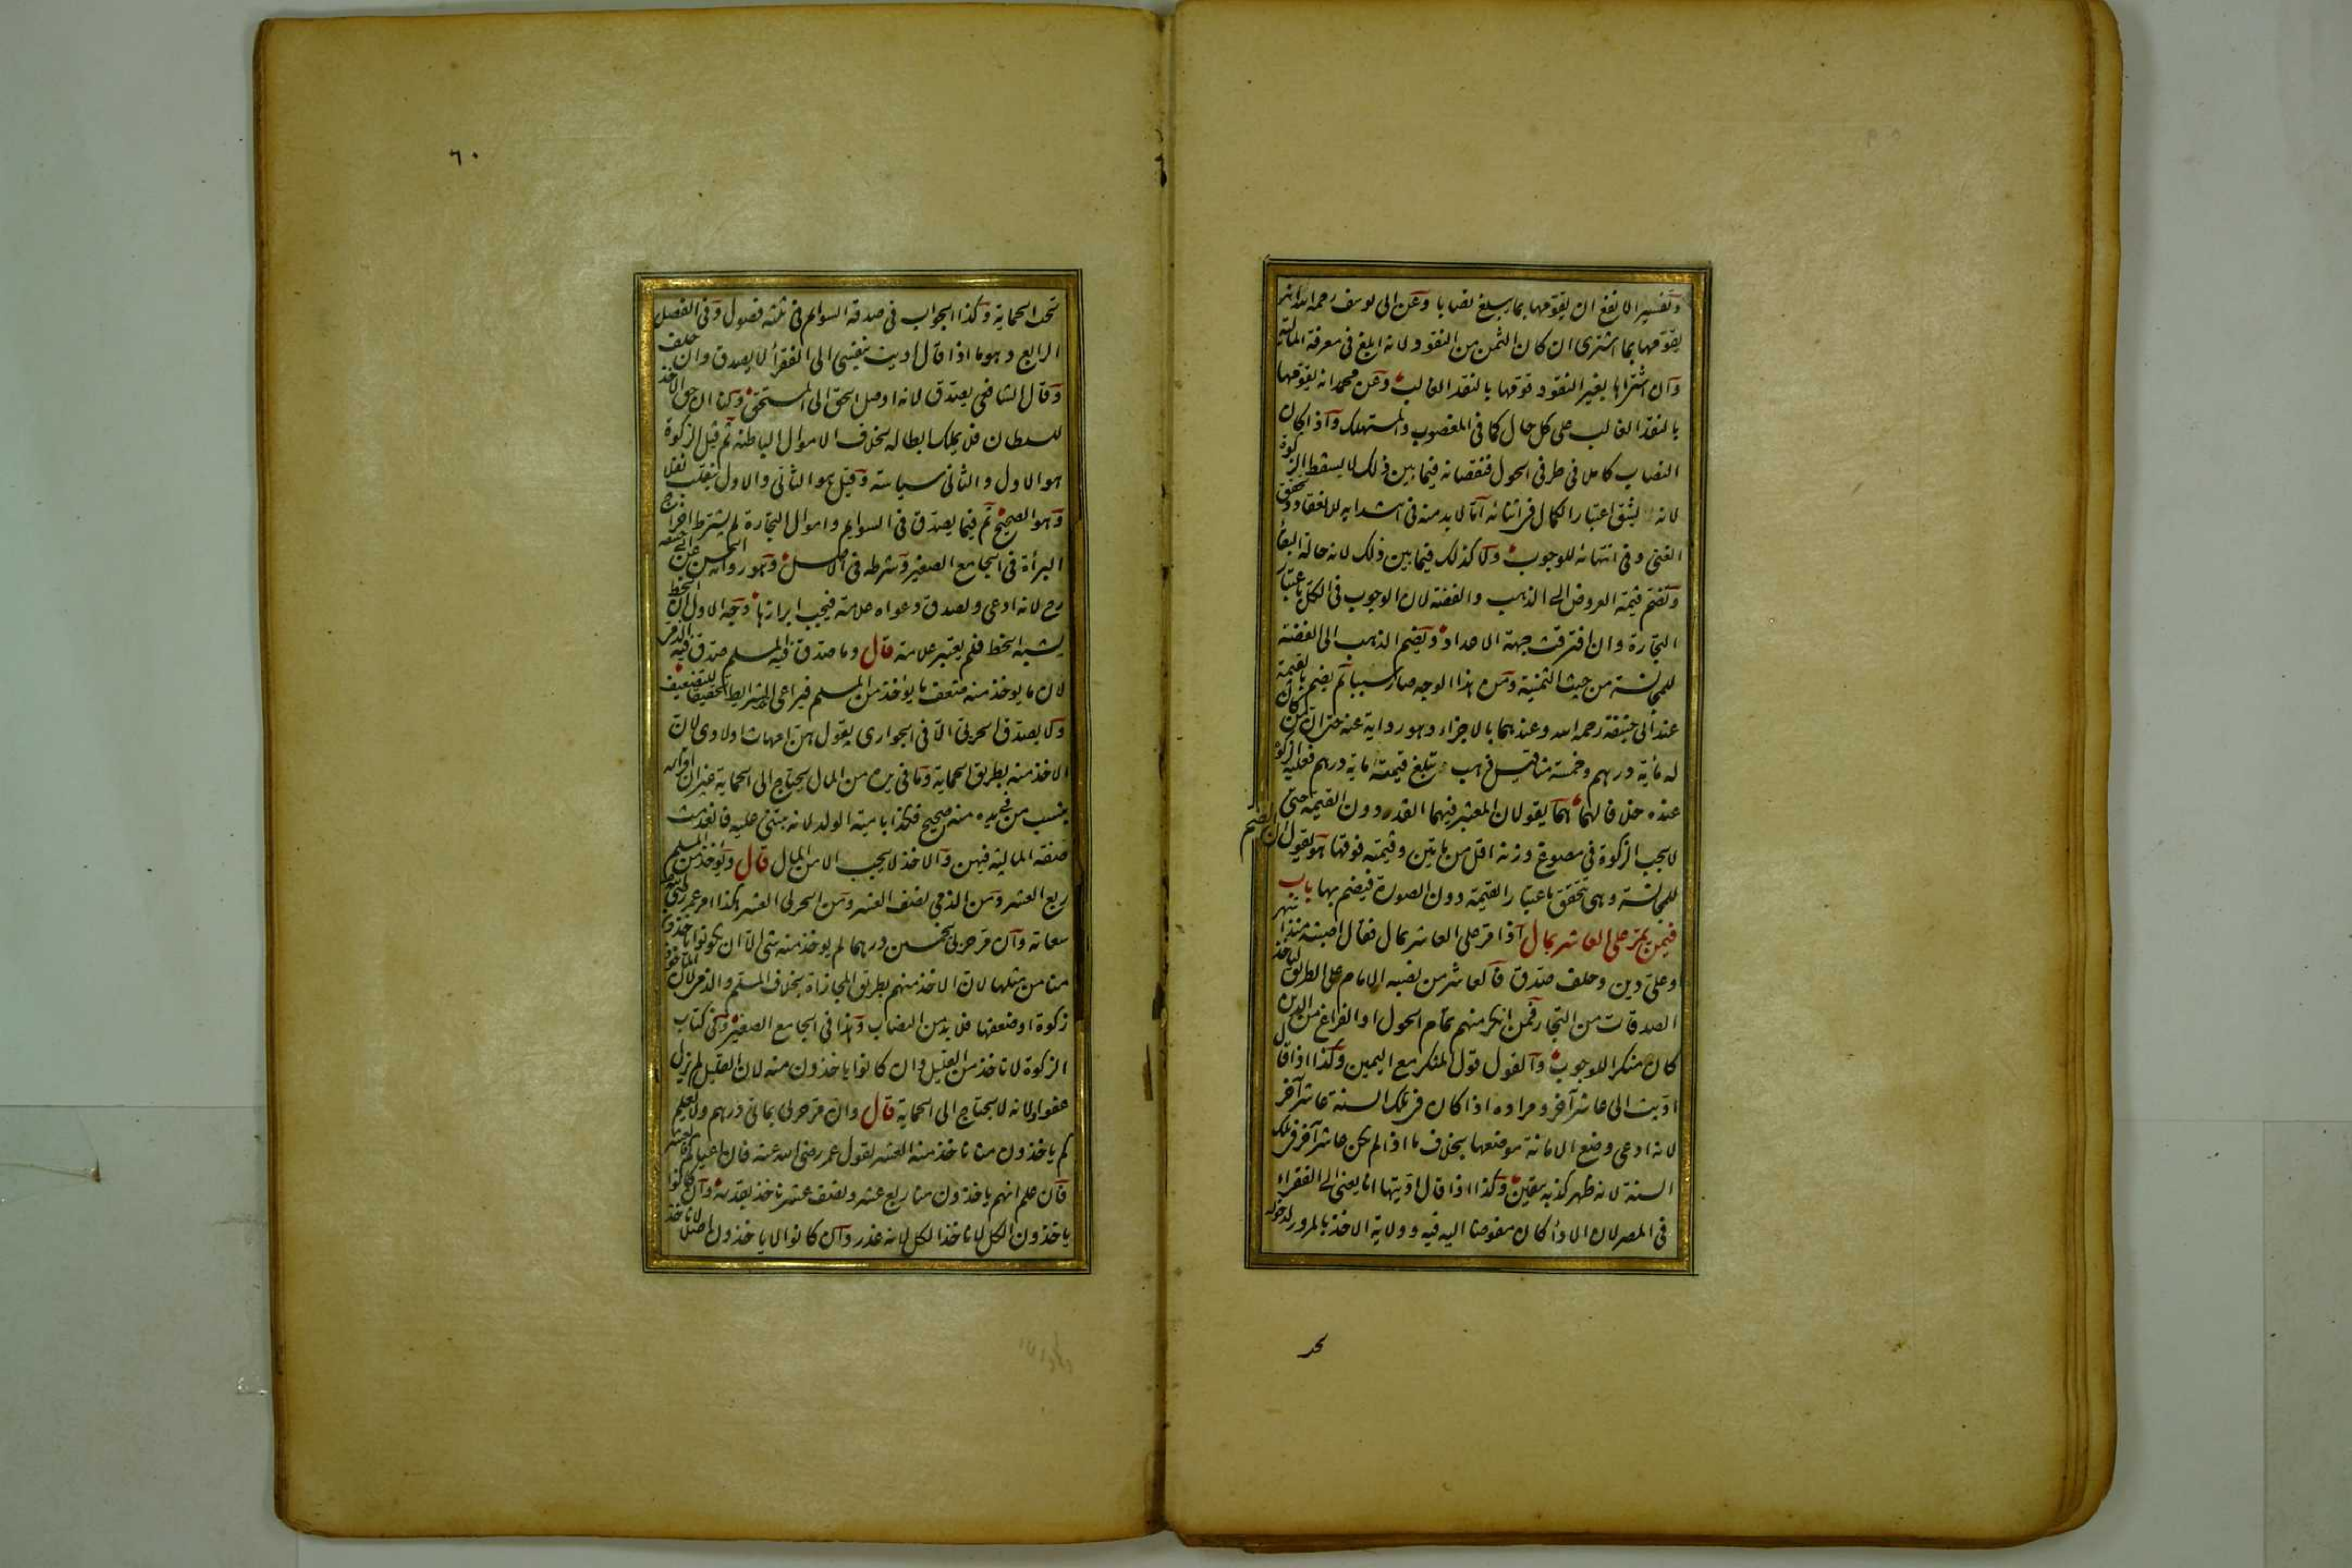 وتفسير الانفع ان يقومها بما يبلغ نصابا وعن ابى يوسف رحمه الله انه
يقومها بما اشترى ان كان الثمن من النقود لانه ابلغ فى معرفة المالية
وان اشتراها بغير النقود قومها بالنقد الغالب وعن محمد انه يقومها
بالنقد الغالب على كل حال كما فى المغصوب والمستهلك واذا كان
النصاب كاملا فى طرفى الحول فنقصانه فيما بين ذلك لا يسقط الزكوة
لانه يشق اعتبار الكمال فى اثنائه اما لا بد منه فى ابتدايه للانعقاد وتحقق
الغنى وفى انتهائه للوجوب ولا كذلك فيما بين ذلك لانه حالة البقأ
وتضم قيمة العروض الى الذهب والفضة لان الوجوب فى الكل باعتبار
التجارة وان افترقت جهة الاعداد ويضم الذهب الى الفضة
للمجانسة من حيث الثمنية ومن هذا الوجه صار سببا ثم يضم بالقيمة
عند أبى حنيفة رحمه الله وعندهما بالاجزاء وهو رواية عنه حتى ان من كان
له مأية درهم وخمسة مثاقيل ذهب تبلغ قيمته ماية درهم فعليه الزكوة
عنده خلافا لهما هما يقولان المعتبر فيهما القدر دون القيمة حتى
لا يجب الزكوة فى مصوغ وزنه اقل من مايتين وقيمته فوقها هو يقول ان الضم
للمجانسة وهى تتحقق باعتبار القيمة دون الصورة فيضم بها باب
فيمن يمر على العاشر بمال اذا مر على العاشر بمال فقال اصبته منذ اشهر
وعلى دين وحلف صدق فالعاشر من نصبه الامام على الطريق لياخذ
الصدقات من التجار فمن انكر منهم تمام الحول او الفراغ من الدين
كان منكرا للوجوب والقول قول المنكر مع اليمين وكذا اذا قال
اديت الى عاشر آخر ومراده اذا كان فى تلك السنة عاشر آخر
لانه ادعى وضع الامانة موضعها بخلاف ما اذا لم يكن عاشر آخر فى تلك
السنة لانه ظهر كذبه بيقين وكذا اذا قال اديتها انا يعنى الى الفقراء
فى المصر لان الادأ كان مفوضا اليه فيه وولاية الاخذ بالمرور لدخوله
تحت
٦٠
تحت الحماية وكذا الجواب فى صدقة السوايم فى ثلثة فصول وفى الفصل
الرابع وهو ما اذا قال اديت بنفسى الى الفقرأ لا يصدق وان حلف
وقال الشافعى يصدق لانه اوصل الحق الى المستحق ولنا ان حق الاخذ
للسلطان فلا يملك ابطاله بخلاف الاموال الباطنة ثم قيل الزكوة
هو الاول والثانى سياسة وقيل هو الثانى والاول ينقلب نفلا
وهو الصحيح ثم فيما يصدق فى السوايم واموال التجارة لم يشترط اخراج
البرأة فى الجامع الصغير وشرطه فى الاصل وهو رواية الحسن عن ابى حنيفة
رح لانه ادعى ولصدق دعواه علامة فيجب ابرازها وجه الاول ان الخط
يشبه الخط فلم يعتبر علامة قال وما صدق فيه المسلم صدق فيه الذمى
لان ما يوخذ منه ضعف ما يؤخذ من المسلم فيراعى الشرايط تحقيقا للتضعيف
ولا يصدق الحربى الا فى الجوارى يقول هن امهات اولادى لان
الاخذ منه بطريق الحماية وما فى يده من المال يحتاج الى الحماية غير ان اقراره
بنسب من فى يده منه صحيح فكذا بامية الولد لانه يبتنى عليه فانعدمت
صفة المالية فيهن والاخذ لا يجب الا من المال قال ويؤخذ من المسلم
ربع العشر ومن الذمى نصف العشر ومن الحربى العشر هكذا امر عمر رضى الله عنه
سعاته وان مر حربى بخمسين درهما لم يوخذ منه شئ الا ان يكونوا ياخذون
منا من مثلها لان الاخذ منهم بطريق المجازاة بخلاف المسلم والذمى لان الماخوذ
زكوة او ضعفها فلا بد من النصاب وهذا فى الجامع الصغير وفى كتاب
الزكوة لا ناخذ من القليل وان كانوا ياخذون منه لان القليل لم يزل
عفوا ولانه لا يحتاج الى الحماية قال وان مر حربى بمائتى درهم ولا يعلم
كم ياخذون منا ناخذ منه العشر لقول عمر رضى الله عنه فان اعياكم فالعشر
فان علم انهم ياخذون منا ربع عشر ونصف عشر ناخذ بقدره وان كانوا
ياخذون الكل لا ناخذ الكل لانه غدر وان كانوا لا ياخذون اصلا لا ناخذ